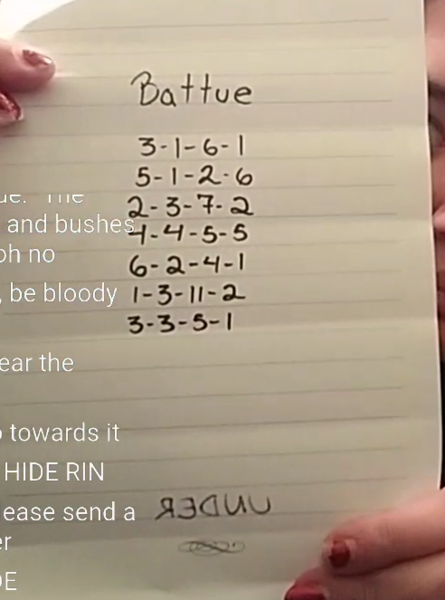 Battue
3-1-6-1
5-1-2-6
2-3-7-2
4-4-5-5
6-2-4-1
1-3-11-2
3-3-5-1
UNDER
The
and bushes
oh no
, be bloody
ear the
towards it
HIDE RIN
ease send a